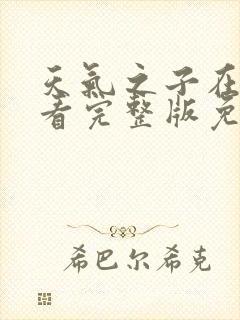 天氣之子在
看完整版免
希巴尔希克